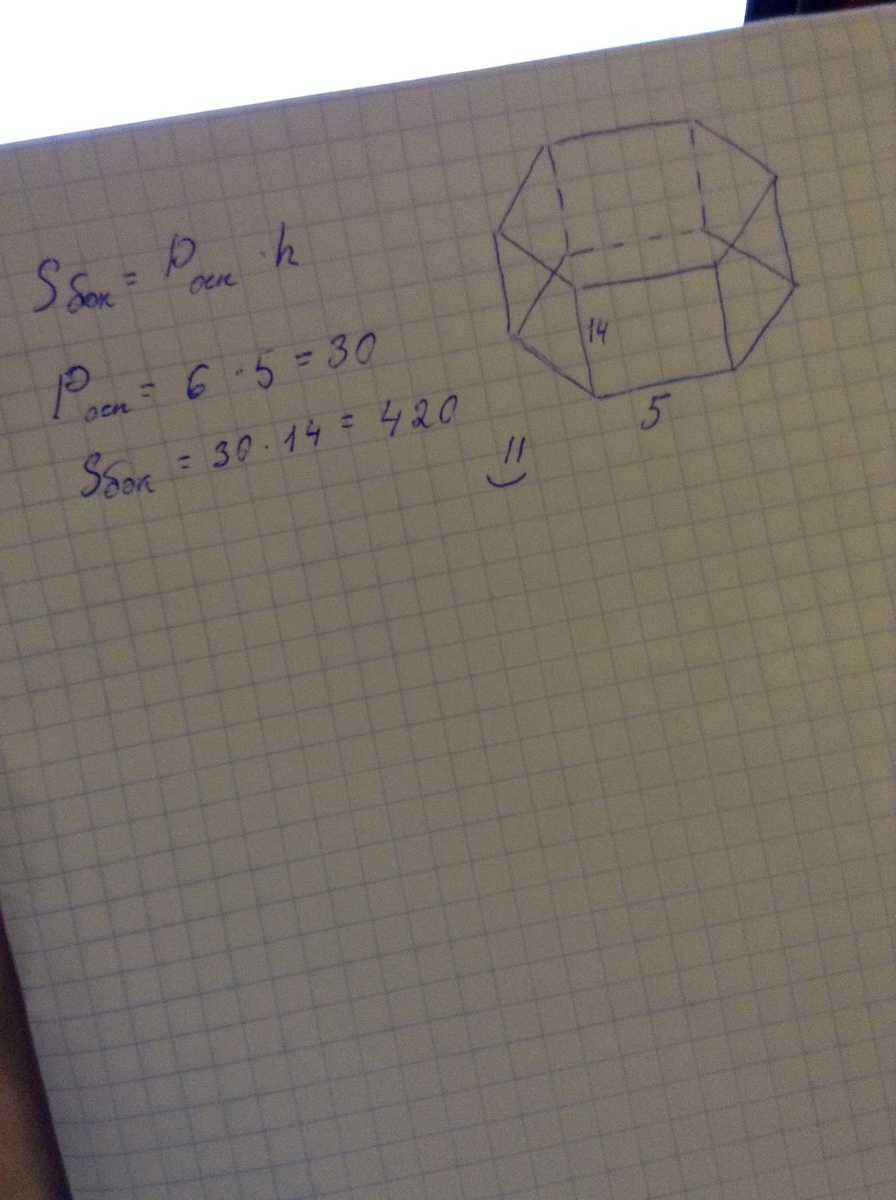 Sбок = Pосн · h
Pосн = 6 · 5 = 30
Sбок = 30 · 14 = 420
14
5